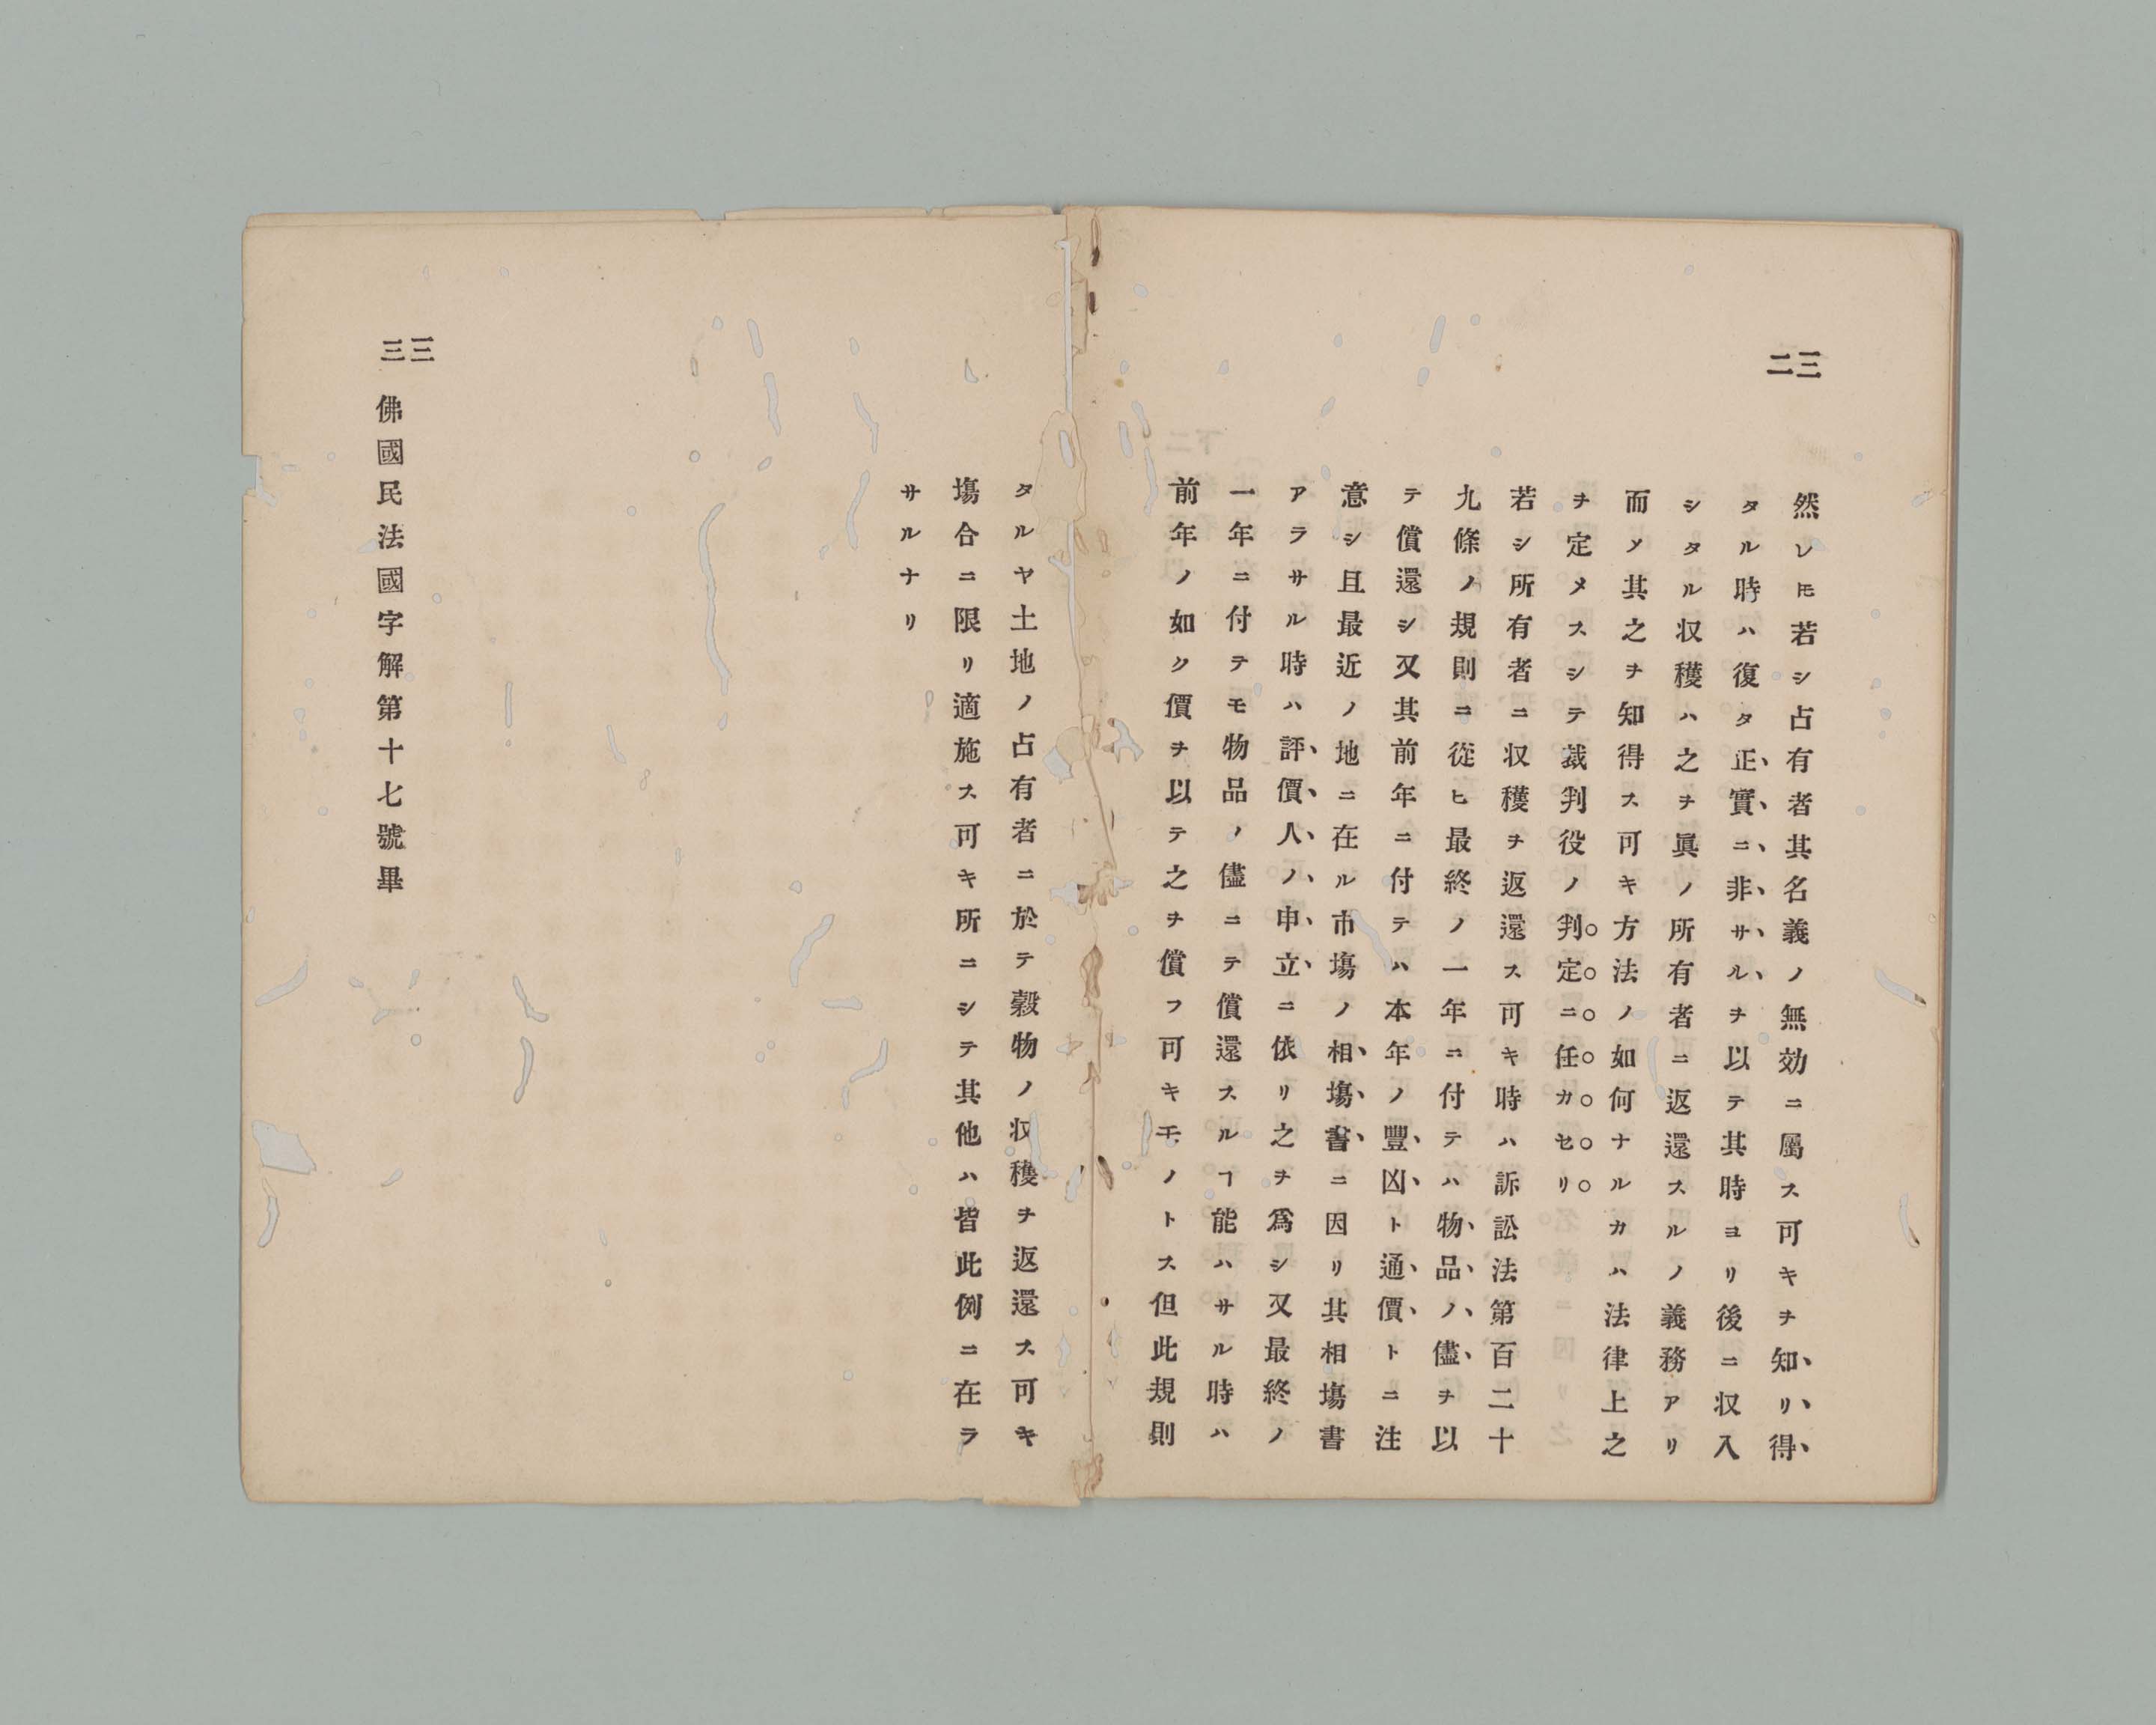 三二
然レ𪜈若シ占有者其名義ノ無効ニ屬ス可キヲ知リ得
タル時ハ復タ正實ニ非サルヲ以テ其時ヨリ後ニ収入
シタル収穫ハ之ヲ眞ノ所有者ニ返還スルノ義務アリ
而メ其之ヲ知得ス可キ方法ノ如何ナルカハ法律上之
ヲ定メスシテ裁判役ノ判定ニ任カセリ
若シ所有者ニ収穫ヲ返還ス可キ時ハ訴訟法第百二十
九條ノ規則ニ從ヒ最終ノ一年ニ付テハ物品ノ儘ヲ以
テ償還シ又其前年ニ付テハ本年ノ豐凶ト通價トニ注
意シ且最近ノ地ニ在ル市塲ノ相塲書ニ因リ其相塲書
アラサル時ハ評價人ノ申立ニ依リ之ヲ爲シ又最終ノ
一年ニ付テモ物品ノ儘ニテ償還スルヿ能ハサル時ハ
前年ノ如ク價ヲ以テ之ヲ償フ可キモノトス但此規則
タルヤ土地ノ占有者ニ於テ穀物ノ収穫ヲ返還ス可キ
塲合ニ限リ適施ス可キ所ニシテ其他ハ皆此例ニ在ラ
サルナリ
三三
佛國民法國字解第十七號畢